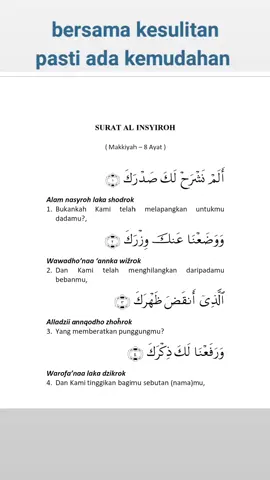 bersama kesulitan
pasti ada kemudahan
SURAT AL INSYIROH
( Makkiyah – 8 Ayat )
أَلَمْ نَشْرَحْ لَكَ صَدْرَكَ ۝١
Alam nasyroh laka shodrok
1. Bukankah Kami telah melapangkan untukmu
dadamu?,
وَوَضَعْنَا عَنكَ وِزْرَكَ ۝٢
Wawadho’naa ‘annka wizrok
2. Dan Kami telah menghilangkan daripadamu
bebanmu,
ٱلَّذِىٓ أَنقَضَ ظَهْرَكَ ۝٣
Alladzii annqodho zhohrok
3. Yang memberatkan punggungmu?
وَرَفَعْنَا لَكَ ذِكْرَكَ ۝٤
Warofa’naa laka dzikrok
4. Dan Kami tinggikan bagimu sebutan (nama)mu,